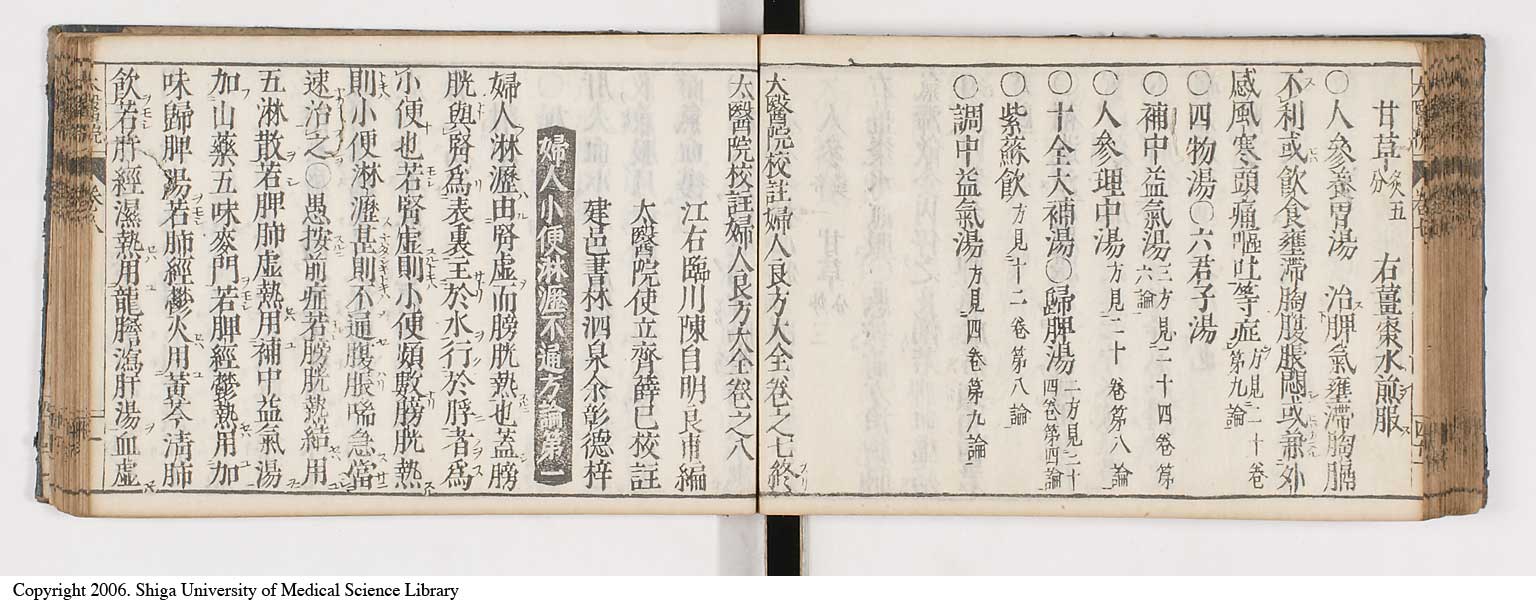 甘草炙五分　右薑棗水煎服
〇人參養胃湯　治脾氣壅滯胸膈
不利或飲食壅滯胸腹脹悶或兼外
感風寒頭痛嘔吐等症方見二十卷第九論
〇四物湯〇六君子湯
〇補中益氣湯三方見二十四卷第六論
〇人參理中湯方見二十卷第八論
〇十全大補湯〇歸脾湯二方見二十四卷第四論
〇紫蘇飲方見十二卷第八論
〇調中益氣湯方見四卷第九論
太醫院校註婦人良方大全卷之七終
太醫院校註婦人良方大全卷之八
江右臨川陳自明良甫編
太醫院使立齊薛已校註
建邑書林泗泉余彰德梓
婦人小便淋瀝不通方論第一
婦人淋瀝由腎虛而膀胱熱也蓋膀
胱與腎爲表裏主於水行於脬者爲
小便也若腎虛則小便頻數膀胱熱
則小便淋瀝甚則不通腹脹喘急當
速治之〇愚按前症若膀胱熱結用
五淋散若脾肺虛熱用補中益氣湯
加山藥五味麥門若脾經鬱熱用加
味歸脾湯若肺經鬱火用黃芩淸肺
飲若肝經濕熱用龍膽瀉肝湯血虛